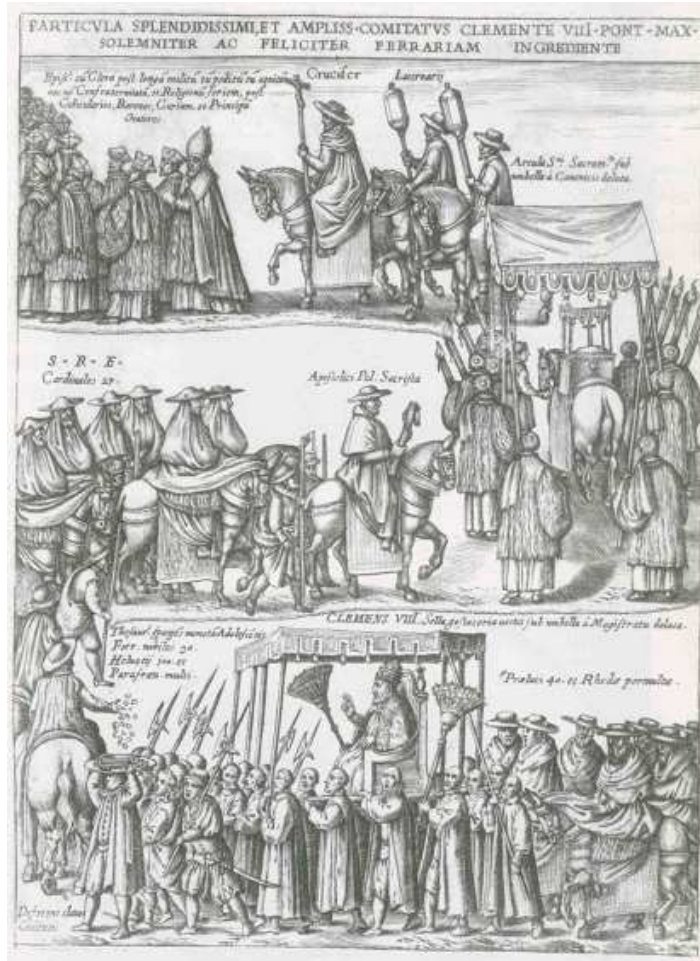 PARTICVLA SPLENDIDISSIMI, ET AMPLISS·COMITATVS CLEMENTE VIII·PONT·MAX·
SOLEMNITER AC FELICITER FERRARIAM INGREDIENTE
Episc. cū Clero post longū militū tū peditū tū equitū
Confraternitatū, et Religionū seriem, post
Cubicularios, Barones, Curiam, et Principū
Oratores
Crucifer
Lucernarij
Arcula S.mi Sacram.ti sub
umbella á Canonicis delata.
S · R · E ·
Cardinales 27·
Apostolici Pal. Sacrista
CLEMENS VIII. Sella gestatoria vectus sub umbella á Magistratu delata.
Thesaur.
Ferr. nobiles 30.
Heluetij 300. et
Parafren. multi.
Prælati 40. et Rhedæ permultæ.
Deferens claues